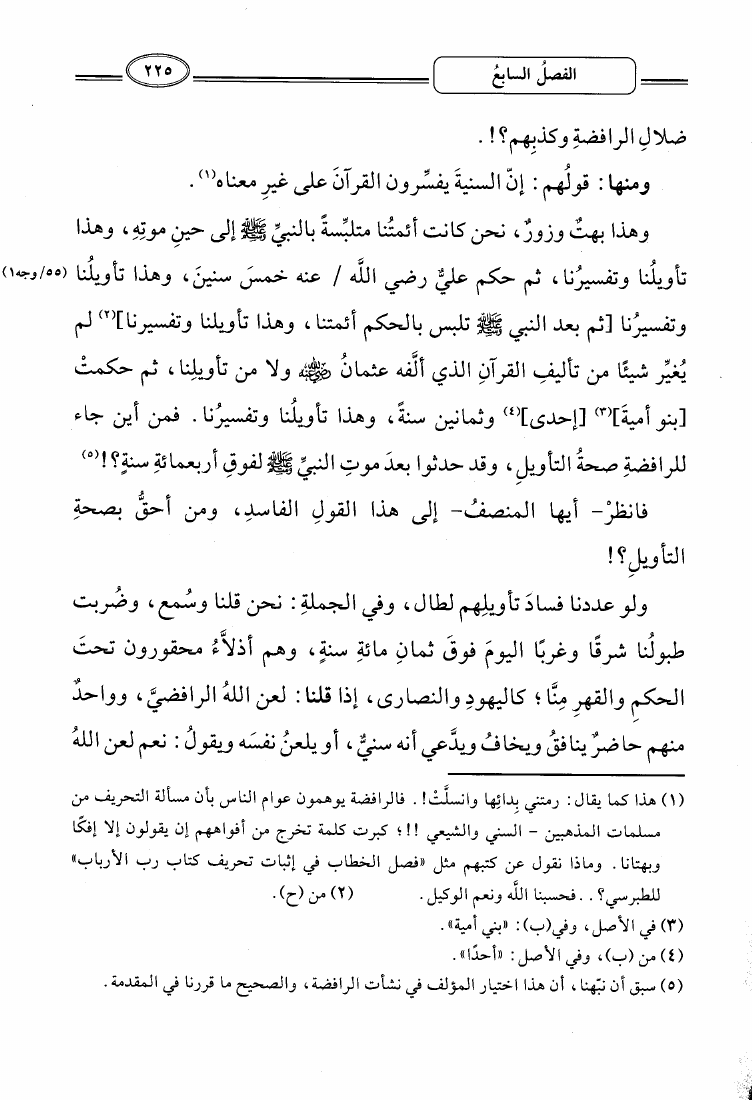 الفصلُ السابعُ
٢٢٥
ضلالِ الرافضةِ وكذبِهم؟!.
ومنها: قولُهم: إنّ السنيةَ يفسِّرون القرآنَ على غيرِ معناه(١).
وهذا بهتٌ وزورٌ، نحن كانت أئمتُنا متلبِّسةً بالنبيِّ ﷺ إلى حينِ موتِهِ، وهذا
تأويلُنا وتفسيرُنا، ثم حكم عليٌّ رضي اللَّه / عنه خمسَ سنينَ، وهذا تأويلُنا (٥٥/وجه١)
وتفسيرُنا [ثم بعد النبي ﷺ تلبس بالحكم أئمتنا، وهذا تأويلنا وتفسيرنا](٢) لم
يُغيِّر شيئًا من تأليفِ القرآنِ الذي ألَّفه عثمانُ رضي الله عنه ولا من تأويلِنا، ثم حكمتْ
[بنو أميةَ](٣) [إحدى](٤) وثمانين سنةً، وهذا تأويلُنا وتفسيرُنا. فمن أين جاء
للرافضةِ صحةُ التأويلِ، وقد حدثوا بعدَ موتِ النبيِّ ﷺ لفوقِ أربعمائةِ سنةٍ؟!(٥)
فانظرْ- أيها المنصفُ- إلى هذا القولِ الفاسدِ، ومن أحقُّ بصحةِ
التأويلِ؟!
ولو عددنا فسادَ تأويلِهم لطال، وفي الجملةِ: نحن قلنا وسُمع، وضُربت
طبولُنا شرقًا وغربًا اليومَ فوقَ ثمانِ مائةِ سنةٍ، وهم أذلاَّءُ محقورون تحتَ
الحكمِ والقهرِ مِنَّا؛ كاليهودِ والنصارى، إذا قلنا: لعن اللهُ الرافضيَّ، وواحدٌ
منهم حاضرٌ ينافقُ ويخافُ ويدَّعي أنه سنيٌّ، أو يلعنُ نفسَه ويقولُ: نعم لعن اللهُ
(١) هذا كما يقال: رمتني بِدائِها وانسلَّتْ!. فالرافضة يوهمون عوام الناس بأن مسألة التحريف من
مسلمات المذهبين - السني والشيعي !!؛ كبرت كلمة تخرج من أفواههم إن يقولون إلا إفكًا
وبهتانا. وماذا نقول عن كتبهم مثل «فصل الخطاب في إثبات تحريف كتاب رب الأرباب»
للطبرسي؟ .. فحسبنا اللَّه ونعم الوكيل. (٢) من (ح).
(٣) في الأصل، وفي(ب): «بني أمية».
(٤) من (ب)، وفي الأصل: «أحدًا».
(٥) سبق أن نبّهنا، أن هذا اختيار المؤلف في نشأت الرافضة، والصحيح ما قررنا في المقدمة.